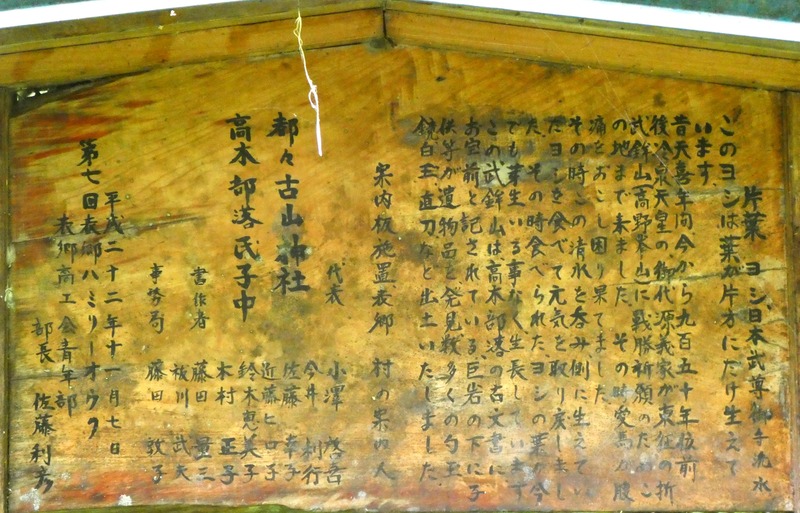 片葉ヨシ日本武尊御手洗水
このヨシは葉が片方にだけ生えて
います
昔天喜年間今から九百五十年位前
後冷泉天皇の御代源義家が東征の折
武鉾山(高野峯山)に戦勝祈願のためこ
の地まで来ました その時愛馬が腹
痛をおこし困り果てました
その時この清水を呑み側に生えてい
たヨシを食べて元気を取り戻しまし
た。その時食べられたヨシの葉が今
でも芽生いる事なく生長しています
この武鉾山は高木部落の古文書に
お宮前と記されている巨岩の下に子
供等が遺物品を発見数多くの勾玉
鏡白玉直刀など出土いたしました
案内板施置表郷 村の案内人
代表 小澤
今井 利行
都々古山神社
佐藤 幸子
近藤ヒロ子
高木部落氏子中
鈴木恵美子
木村 正子
書作者 藤田 量三
武夫
事務局 藤田 敦子
平成二十二年十一月七日
第七回表郷ハミリーオウク
表郷商工会青年部
部長 佐藤利彦